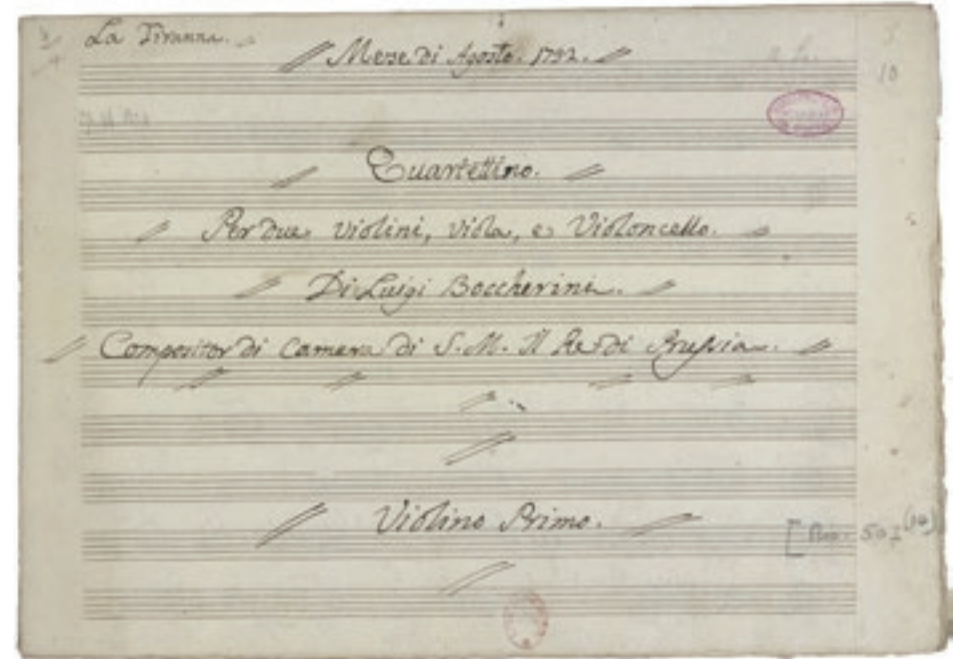 La Tiranna.
Mese di Agosto. 1792.
10
Quartettino.
Per due violini, viola, e Violoncello.
Di Luigi Boccherini.
Compositor di Camera di S. M. Il Re di Prussia.
Violino Primo.